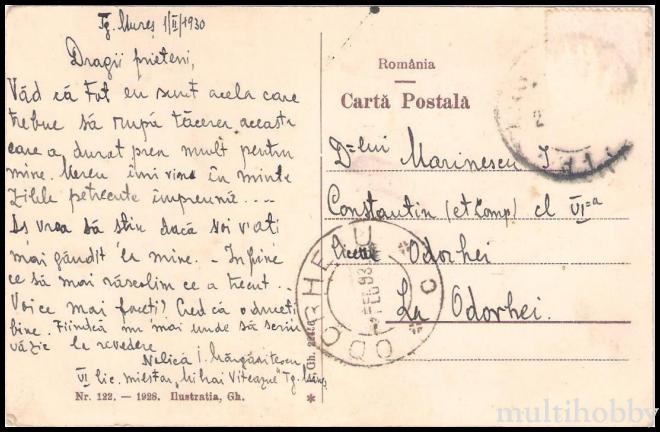 Tg. Mureș 1/II/1930
Dragii prieteni,
Văd că tot eu sunt acela care
trebue să rupă tăcerea aceasta
care a durat prea mult pentru
mine. Mereu îmi vine în minte
zilele petrecute împreună....
Aș vrea să știu dacă voi v'ați
mai gândit la mine. - Înfine
ce să mai răscolim ce a trecut...
Voi ce mai faceți? Cred că o duceți
bine. Fiindcă nu mai unde să scriu
vă zic la revedere
Nelică I. Mărgăritescu
VI lic. militar „Mihai Viteazul" Tg. Mureș
Nr. 122. — 1928. Ilustratia, Gh.
România
Cartă Postală
D-lui Marinescu I.
Constantin (et Comp) cl VI-a
Liceul Odorhei
La Odorhei.
ODORHEIU
FEB 930
multihobby